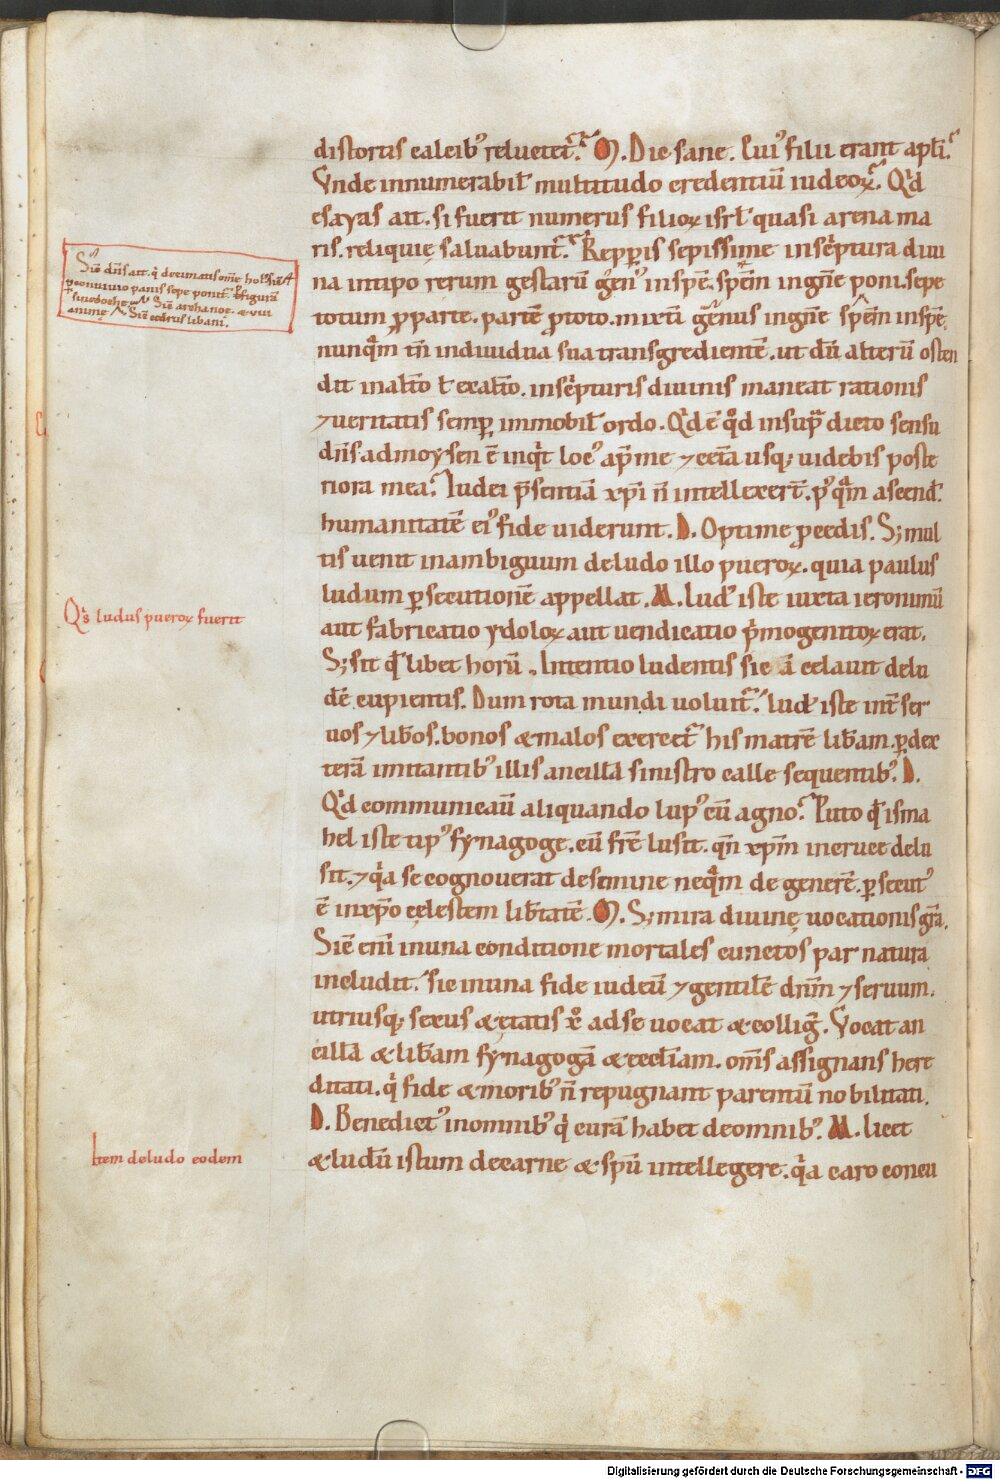 distortis calcib᾽ reluctet᷑. M. Dic sane. Cui᾽ filii erant apli᷑.
Vnde innumerabil᾽ multitudo credentiū iudeoꝝ. Qͥd
esayas ait. si fuerit numerus filioꝝ isrl᾽ quasi arena ma
ris. reliquię saluabunt᷑. Repperis sepissime in scͥptura diui
na in tipo rerum gestarū
totum ꝓ parte. partē ꝓ toto. mixtī
nunqͣm tn̄ indiuidua sua transgredientē. ut dū alterū osten
dit in alt̄o ł ex alt̄o. in scͥpturis diuinis maneat rationis
⁊ ueritatis semꝑ immobil᾽ ordo. Qͥd ē qͦd in supͣ dicto sensu
dn̄s ad moysen ē inqͥt loc᾽ ap̄ me ⁊ cetā usq; uidebis poste
riora mea. Iudei p̄sentiā xp̄i n̄ intellexert̄. p᾽qͣm ascend᾽
humanitatē ei᾽ fide uiderunt. D. Optime ꝓcedis. S; mul
tis uenit in ambiguum de ludo illo pueroꝝ. quia paulus
ludum ꝑsecutionē appellat. M. Lud᾽ iste iuxta ieronimū
aut fabricatio ydoloꝝ aut uendicatio pͥmogenitoꝝ erat.
S; sit qͥd libet horū. Intentio ludentis sic ā celauit delu
dē cupientis. Dum rota mundi uoluit᷑. lud᾽ iste int̄ ser
uos ⁊ lib̄os. bonos & malos exercet᷑ his matrē lib̄am. ꝑ dex
terā imitantib᾽ illis ancillā sinistro calle sequentib᾽. D.
Qͥd communicaū aliquando lup᾽ cū agno. Puto qͥd isma
hel iste tip᾽ synagoge. cū fr̄e lusit. qn̄ xp̄m in cruce delu
sit. ⁊ qͥa se cognouerat de semine neqͣm de generē. ꝑsecut᾽
ē in xp̄o cęlestem lib̄tatē. M. S; mira diuinę uocationis gr̄a.
Sic eni᾽ in una conditione mortales cunctos par natura
includit. sic in una fide iudeū ⁊ gentilē dn̄m ⁊ seruum.
utriusq; sexus & ętatis xͦ ad se uocat & collig᷑. Vocat an
cillā & lib̄am synagogā & eccl̄iam. om̄s assignans here
ditati. qͥ fide & morib᾽ n̄ repugnant parentū nobilitati.
D. Benedict᾽ in omnib᾽ qͥ curā habet de omnib᾽. M. Licet
& ludū istum de carne & spū intellegere. qͥa caro concu
Qͥs ludus pueroꝝ fuerit
Item de ludo eodem